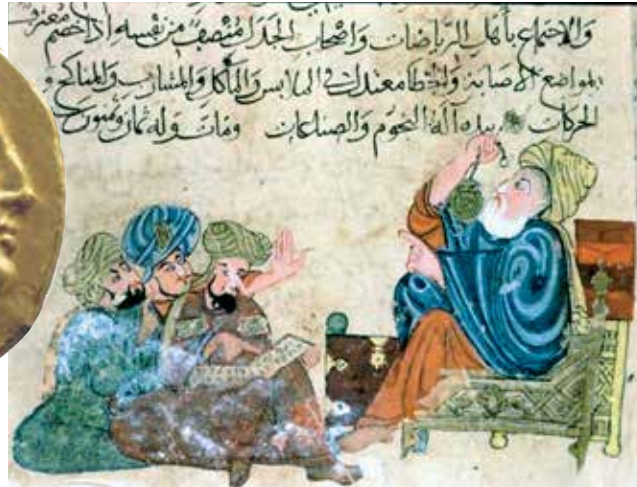 والاجتماع بأهل الرياضات واصحاب الجدل منصف من نفسه اذا خصم معترف
بمواضع الاصابة والخطا معتدل في الملابس والمأكل والمشارب والمناكح و
الحركات بيده آلة النجوم والصناعات ومات وله ثمان وستون